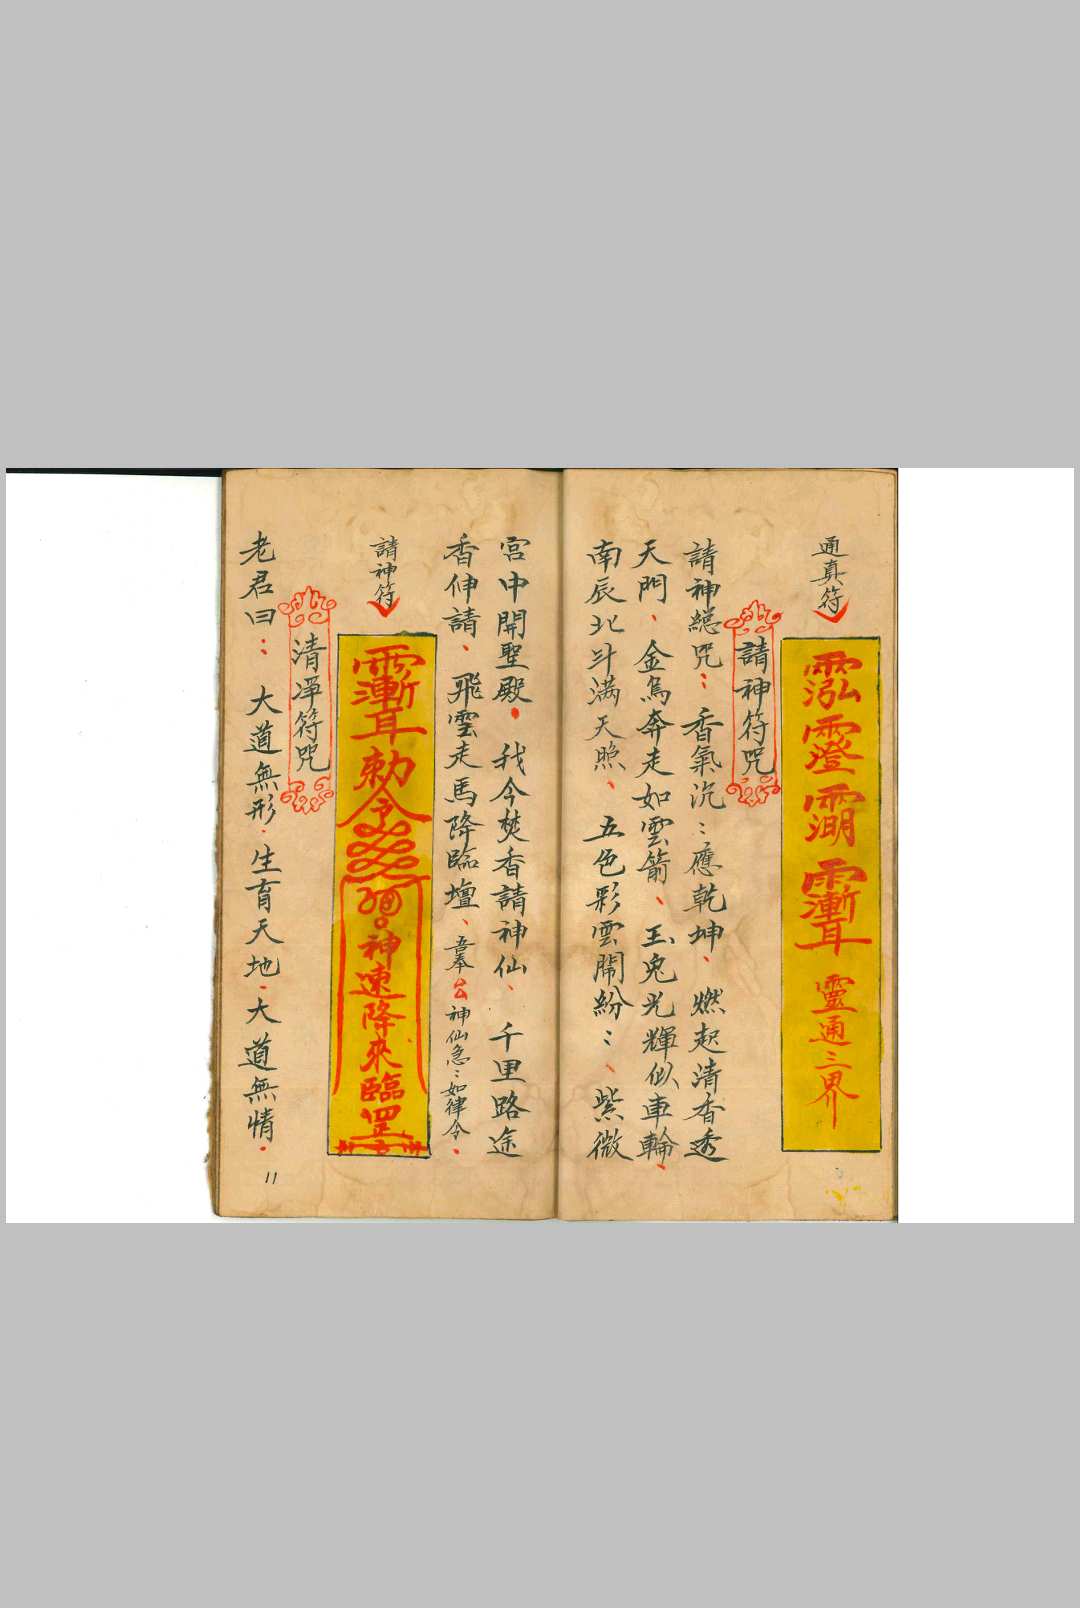 通真符
靈通三界
請神符咒
請神總咒：香氣沉：應乾坤、燃起清香透
天門、金烏奔走如雲箭、玉兔光輝似車輪、
南辰北斗滿天照、五色彩雲鬧紛：、紫微
宮中開聖殿。我今焚香請神仙、千里路途
香伸請、飛雲走馬降臨壇、吾奉 神仙急：如律令。
請神符
勅令
神速降來臨罡
清凈符咒
老君曰：大道無形。生育天地。大道無情。
11